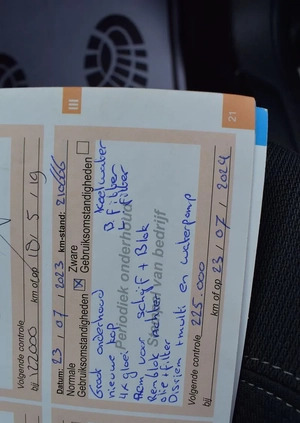 III
Volgende controle
bij: 122000 km of op 18 / 5 / 19
Datum: 23 / 07 / 2023 km-stand: 210666
Normale Gebruiksomstandigheden ☒ Zware Gebruiksomstandigheden ☐
Periodiek onderhoud
Stempel van bedrijf
Groot onderhoud Koelwater
nieuwe kop D. filter
4x gloei L. filter
Rem voor schijf + Blok
Rem blok achter
olie + filter
Distriem + multi en waterpomp
Volgende controle 225.000
bij: km of op 23 / 07 / 2024
21